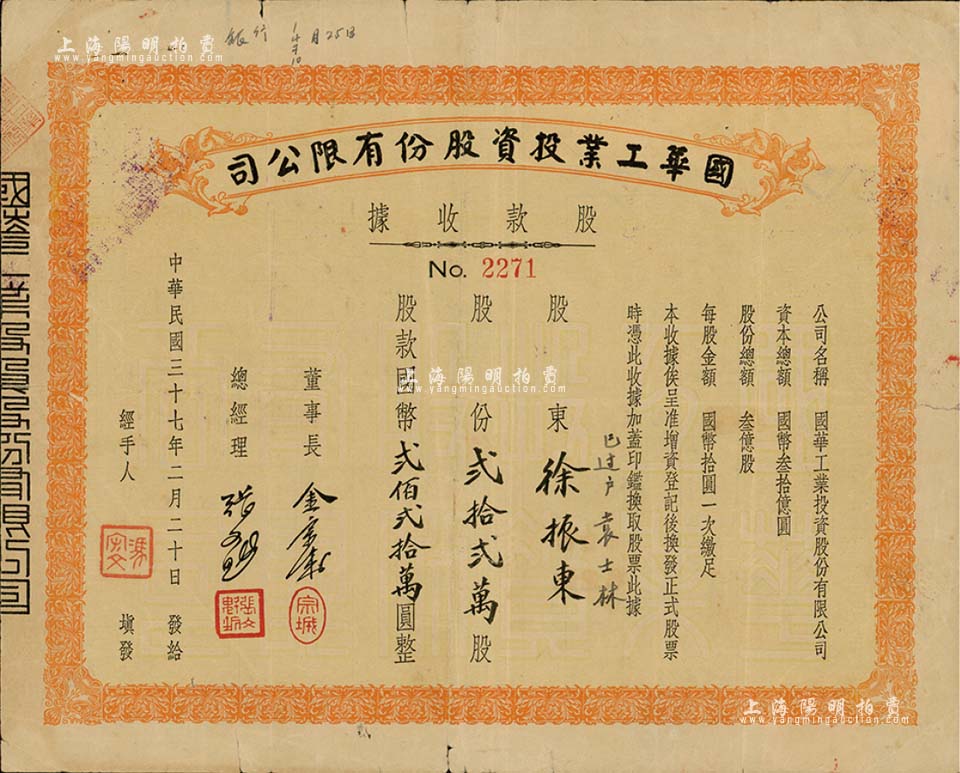 銀行 月25日
國華工業投資股份有限公司
股款收據
No. 2271
公司名稱 國華工業投資股份有限公司
資本總額 國幣叁拾億圓
股份總額 叁億股
每股金額 國幣拾圓一次繳足
本收據俟呈准增資登記後換發正式股票
時憑此收據加蓋印鑑換取股票此據
已过户 袁士林
股東 徐振東
股份 弍拾弍萬股
股款國幣弍佰弍拾萬圓整
董事長
總經理
中華民國三十七年二月二十日 發給
經手人 填發
上海陽明拍賣
www.yangmingauction.com
上海陽明拍賣
www.yangmingauction.com
上海陽明拍賣
www.yangmingauction.com